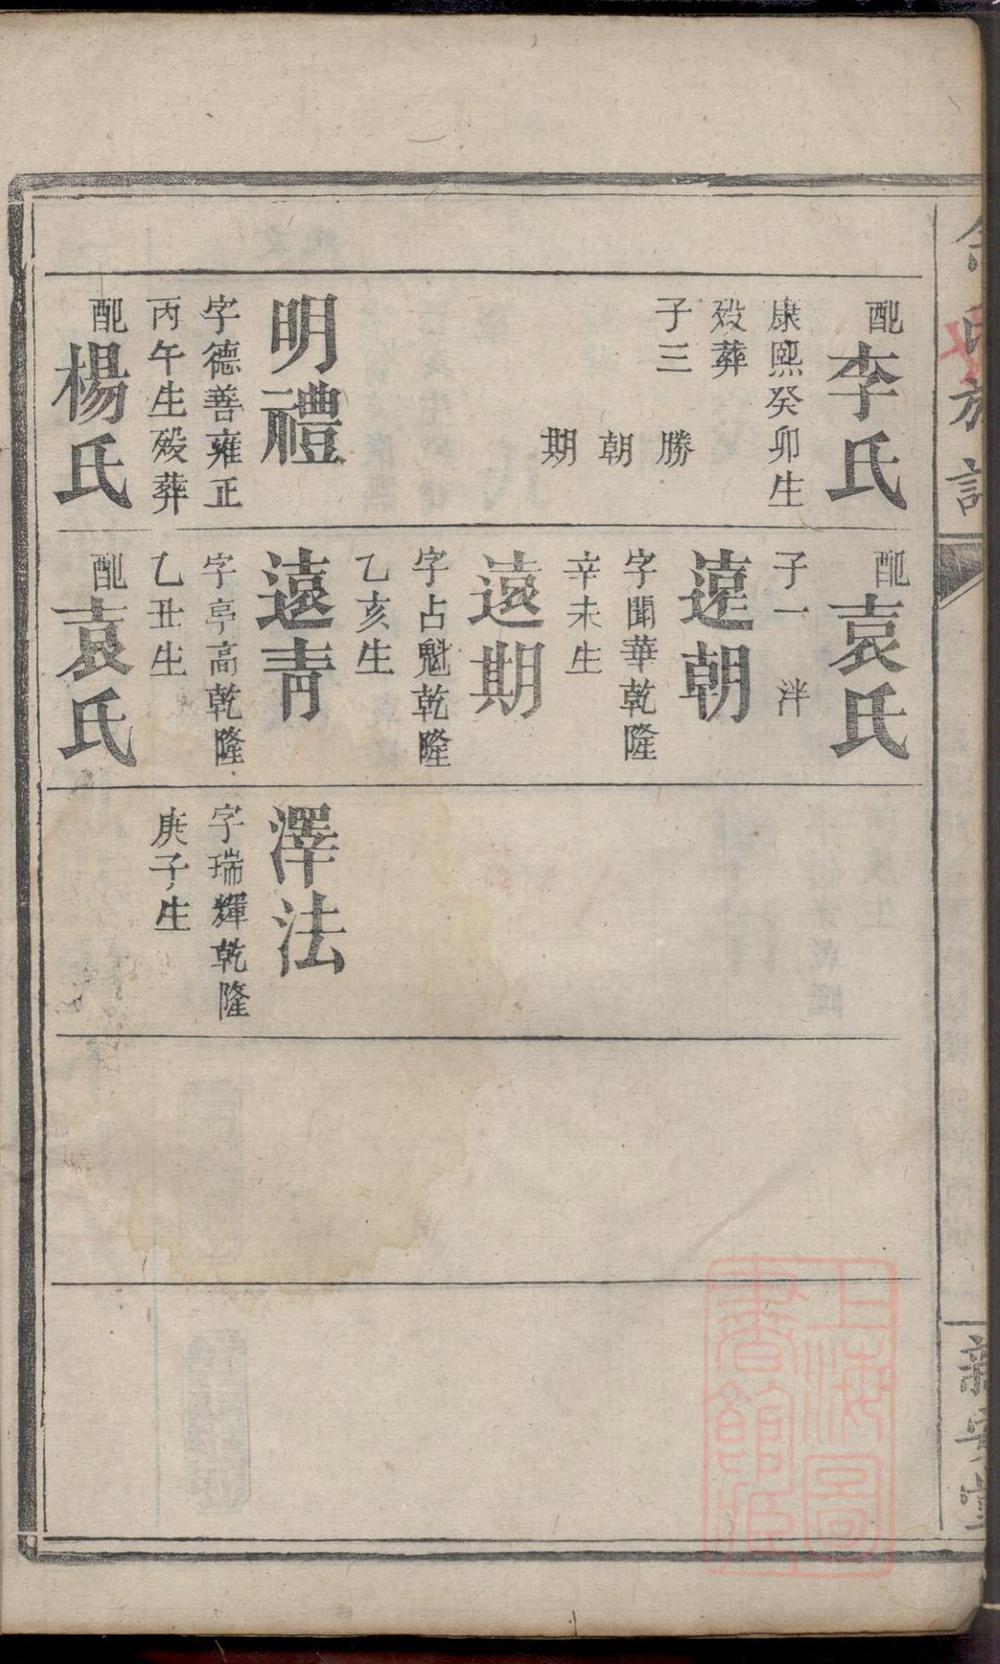 配李氏
康熙癸卯生
歿葬
子三 勝
朝
期
明禮
字德善雍正
丙午生殁葬
配楊氏
配袁氏
子一 泮
遠朝
字聞華乾隆
辛未生
遠期
字占魁乾隆
乙亥生
遠青
字亭高乾隆
乙丑生
配袁氏
澤法
字瑞輝乾隆
庚子生
氏族譜
新安堂
上海圖
書館藏